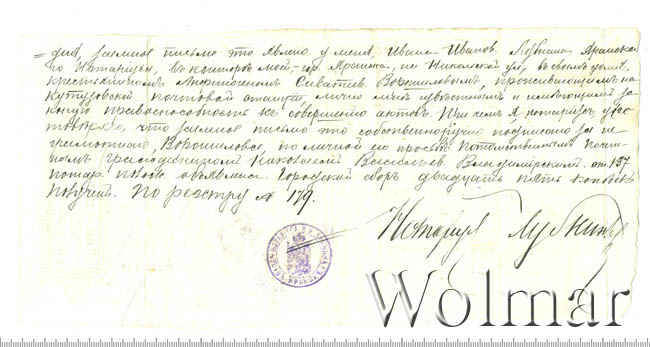 = дня, заемное письмо это явлено у меня, Ивана Иванов. Лубкина Яранска
го Нотариуса, въ конторѣ моей, гор. Яранска, по Никольской ул., въ своемъ домѣ,
крестьяниномъ Савватіев. Ворошиловымъ, проживающимъ на
Кутузовской почтовой станціи, лично мнѣ извѣстнымъ и имѣющимъ за
конную правоспособность къ совершенію актовъ. При чемъ Я нотаріусъ, удос
товѣряю, что заемное письмо это собственноручно подписано за не
грамотного, Ворошилова, по личной его просьбѣ Потомственнымъ Почет
нымъ гражданиномъ Васильев. Владимірскимъ. ст. 137
нотар. полож. объявлена. Городской сборъ двадцать пять копѣекъ
получен. По реестру № 179.
Нотаріусъ Лубкинъ
ЯРАНСКЪ
Wolmar